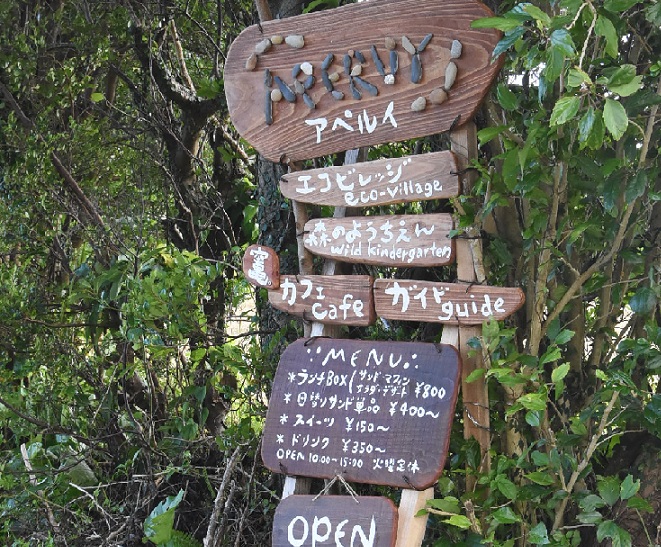 APERUY
アペルイ
エコビレッジ
eco-village
森のようちえん
Wild kindergarten
窯
カフェ
cafe
ガイド
guide
MENU
*ランチBOX(サンド マフィン
サラダ・デザート ¥800
*日替りサンド単品 ¥400〜
*スイーツ ¥150〜
*ドリンク ¥350〜
OPEN 10:00-15:00 火曜定休
OPEN